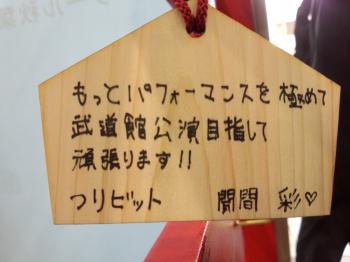 もっとパフォーマンスを極めて
武道館公演目指して
頑張ります!!
つりビット 聞間 彩♡